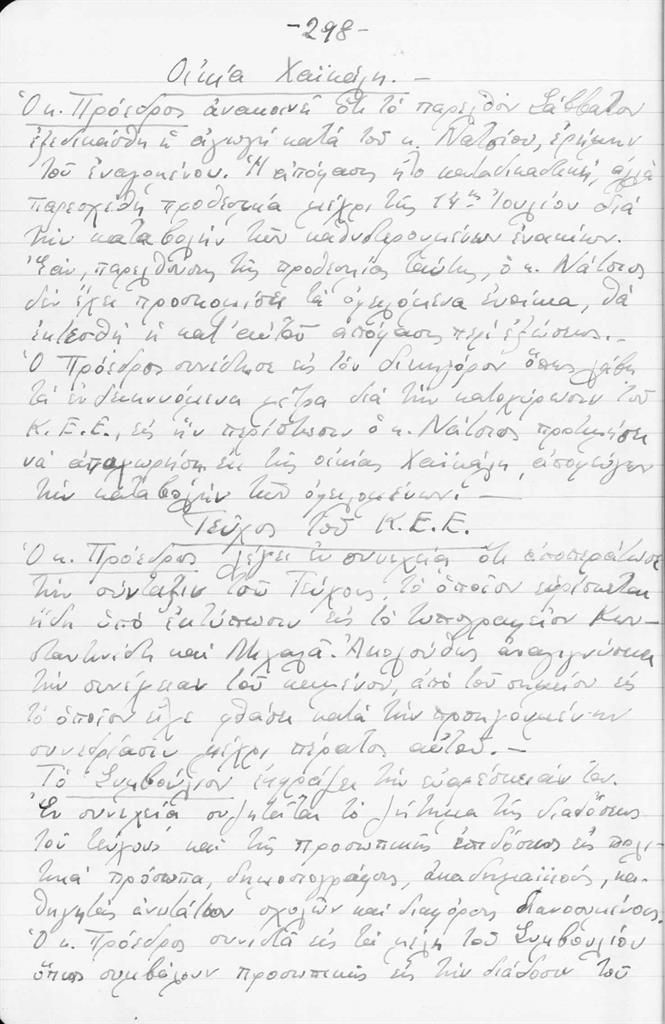 -298-
Οἰκία Χαϊκάλη.-
Ὁ κ. Πρόεδρος ἀνακοινεῖ ὅτι τό παρελθόν Σάββατον
ἐξεδικάσθη ἡ ἀγωγή κατά τοῦ κ. Νατσίου, ἐρήμην
τοῦ ἐναγομένου. Ἡ ἀπόφασις ἦτο καταδικαστική, ἀλλά
παρεσχέθη προθεσμία μέχρι τῆς 14ης Ἰουλίου διά
τήν καταβολήν τῶν καθυστερουμένων ἐνοικίων.
Ἐάν, παρελθούσης τῆς προθεσμίας ταύτης, ὁ κ. Νάτσιος
δέν ἔχει προσκομίσει τά ὀφειλόμενα ἐνοίκια, θά
ἐκτεσθῆ ἡ κατ' αὐτοῦ ἀπόφασις περί ἐξώσεως.-
Ὁ Πρόεδρος συνέστησε εἰς τόν δικηγόρον ὅπως λάβη
τά ἐνδεικνυόμενα μέτρα διά τήν κατοχύρωσιν τοῦ
Κ.Ε.Ε., εἰς ἥν περίπτωσιν ὁ κ. Νάτσιος προτιμήσει
νά ἀποχωρήση ἐκ τῆς οἰκίας Χαϊκάλη, ἀποφεύγων
τήν καταβολήν τῶν ὀφειλομένων.-
Τεῦχος τοῦ Κ.Ε.Ε.
Ὁ κ. Πρόεδρος λέγει ἐν συνεχεία ὅτι ἀποπεράτωσε
τήν σύνταξιν τοῦ Τεύχους, τό ὁποῖον εὑρίσκεται
ἤδη ὑπό ἐκτύπωσιν εἰς τό τυπογραφεῖον Κων-
σταντινίδη καί Μιχαλᾶ. Ἀκολούθως ἀναγιγνώσκει
τήν συνέχειαν τοῦ κειμένου, ἀπό τοῦ σημείου εἰς
τό ὁποῖον εἶχε φθάσει κατά τήν προηγουμένην
συνεδρίασιν μέχρι πέρατος αὐτοῦ.-
Τό Συμβούλιον ἐκφράζει τήν εὐαρέσκειάν του.
Ἐν συνεχεία συζητεῖται τό ζήτημα τῆς διαθέσεως
τοῦ τεύχους καί τῆς προσωπικῆς ἐπιδόσεως εἰς πολι-
τικά πρόσωπα, δημοσιογράφους, ἀκαδημαϊκούς, κα-
θηγητάς ἀνωτάτων σχολῶν καί διαφόρους διανοουμένους.
Ὁ κ. Πρόεδρος συνιστᾶ εἰς τά μέλη τοῦ Συμβουλίου
ὅπως συμβάλουν προσωπικῶς εἰς τήν διάδοσιν τοῦ